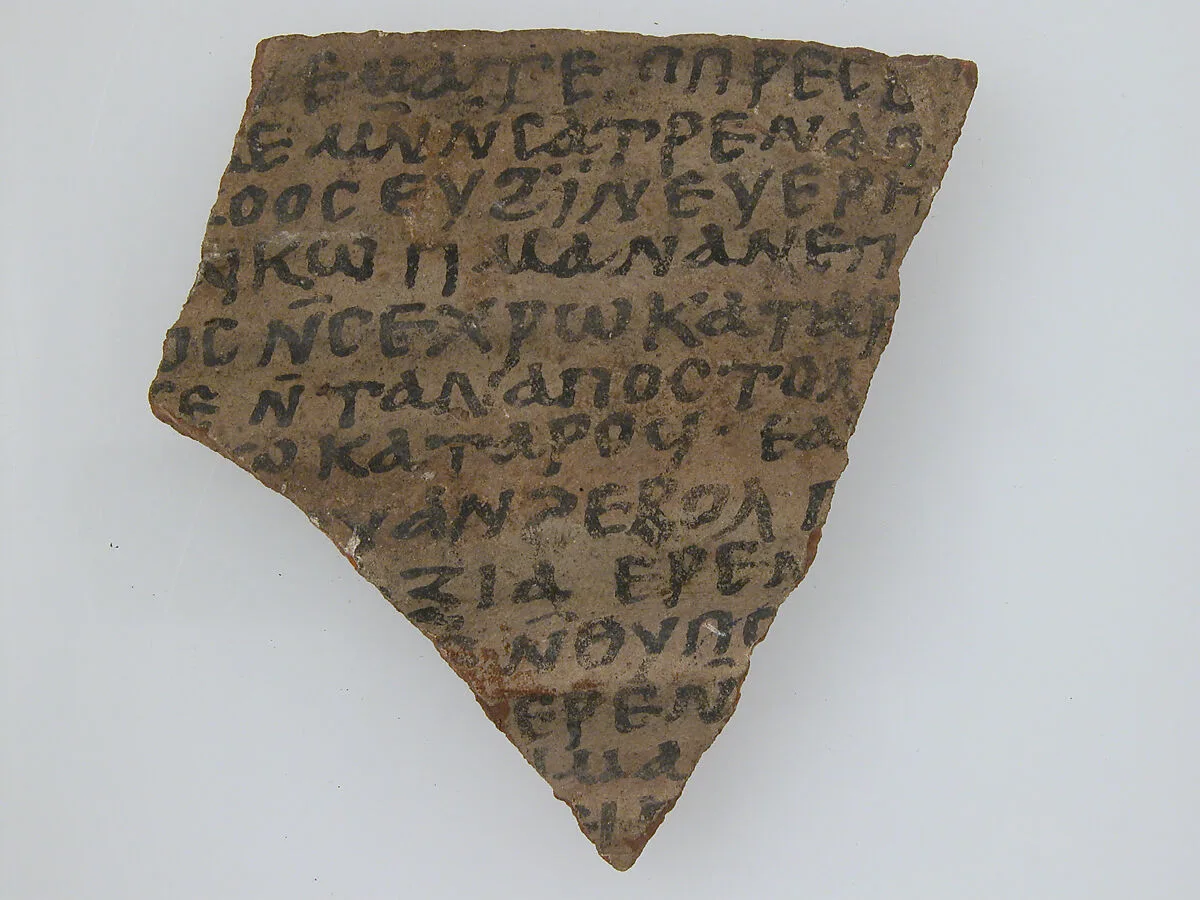 ⲉⲙⲁⲧⲉ ⲡⲡⲣⲉⲥⲃ
ⲇⲉ ⲙⲛ̄ⲛ̄ⲥⲁⲧⲣⲉⲛⲁⲡ
ⲟⲟⲥ ⲉⲩϩⲓ̈ⲛⲉⲩⲉⲣⲏ
ⲛⲕⲱ ⲡⲙⲁⲛⲁⲛⲉⲡ
ⲟⲥ ⲛ̄ⲥⲉⲭⲣⲱ ⲕⲁⲧⲁⲣ
ⲉ ⲛ̄ⲧⲁⲛⲁⲡⲟⲥⲧⲟⲗ
ⲱ ⲕⲁⲧⲁⲣⲟⲩ· ⲉⲁ
ⲩⲁⲛϩⲉⲃⲟⲗ ⲡ
ⲝⲓⲁ ⲉⲣⲉⲛ
ⲛ̄ⲑⲩⲡⲟ
ⲉⲣⲉⲛ̄
ⲙⲁ